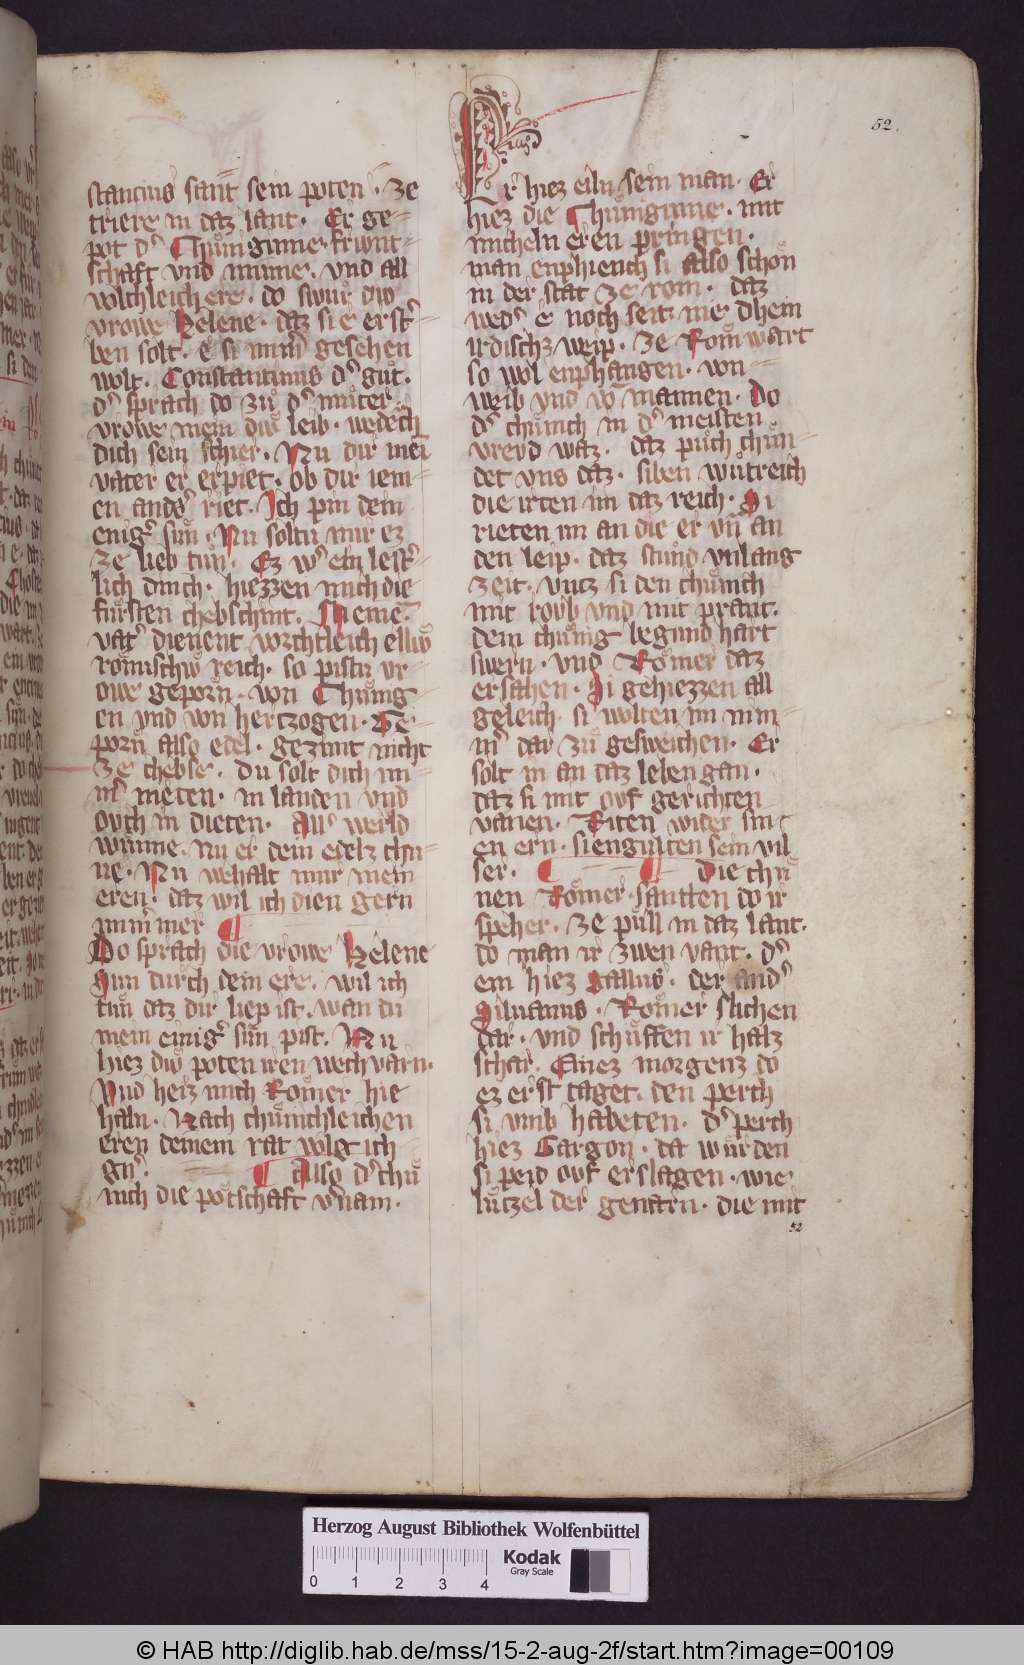 52.
stancius sant sein poten · ze
triere in daz lant · Er ge-
pot d͛ Chuͦniginne friunt-
schaft vnd minne · vnd all
wltchleich ere · do swuͦr diw
vrowe Helene · daz si e erst͛-
ben solt · e si nim͛ gesehen
wolt · Constantinus d͛ guͦt ·
d͛ sprach do zuͦ d͛ muͦter ·
vrowe mein diu leib · wedench
dich sein schier · Nu dir mei
vater er erpiet · ob dir iem-
en and͛s riet · Ich pin dein
enig͛ sun · Nu soltu mir ez
ze lieb tun · Ez w͛ ein lest͛-
lich dinch · hiezzen mich die
fuͤrsten chebschint · Meine͛
vat͛ dienent vorchtleich elliw
roͤmischiw reich · so pistu vr-
owe geporn · von Chuͤnig-
en vnd von hertzogen · Ge-
porn also edel · gezimt nicht
ze chebse · du solt dich im-
m͛ nieten · in landen vnd
ovch in dieten · All͛ werld
wnne · nu er dein edelz chu-
ne · Nu wehalt mir mein
eren · daz wil ich dien gern
immer ¶
Do sprach die vrowe Helene
Sun durch dein ere · wil ich
tuͦn daz dir liep ist · wan du
mein einig͛ sun pist · Nu
hiez diw poten iren wech varn ·
Vnd heiz mich Roͤmer hie
haln · Nach chuͤnichleichen
eren deinem rat volg ich
gn͛ · ¶ Also d͛ chuͤ
nich die potschaft v͛nam ·
Er hiez eiln sein man · Er
hiez die Chuͤniginne · mit
micheln eren pringen ·
man enphiench si also schon
in der stat ze rom · daz
wed͛ e noch seit nie dhein
irdischz weip · ze Rom wart
so wol enphangen · von
weib vnd vō mannen · Do
d͛ chuͤnich in d͛ meisten
vrevd waz · daz puͦch chuͤn-
det vns daz · siben wuͤtreich
die irten im daz reich · Si
rieten im an die er vn̄ an
den leip · daz stuͦnd vnlang
zeit · vntz si den chuͤnich
mit rovb vnd mit prant ·
dem chuͤnig begund hart
swern · vnd Roͤmer daz
ersahen · Si gehiezzen all
geleich · si wolten im nim-
m͛ dar zuͦ gesweichen · Er
solt in an daz leben gan ·
daz si mit ovf gerichten
vanen · Riten wider sin-
en ern · si engulten sein vil
ser · ¶ ¶ Die chuͤ
nen Roͤmer · santten do ir
speher · ze puͤll in daz lant ·
do man ir zwen vant · d͛
ein hiez Gallus · der and͛
Siluanus · Roͤmer slichen
dar · vnd schuͤften ir halz
schar · Einez morgenz do
ez erst taget · den perch
si vmb habeten · d͛ perch
hiez Gargon · da wurden
si peid ovf erslagen · wie
luͤtzel der genarn · die mit
52
Herzog August Bibliothek Wolfenbüttel
0 1 2 3 4
Kodak
Gray Scale
© HAB http://diglib.hab.de/mss/15-2-aug-2f/start.htm?image=00109